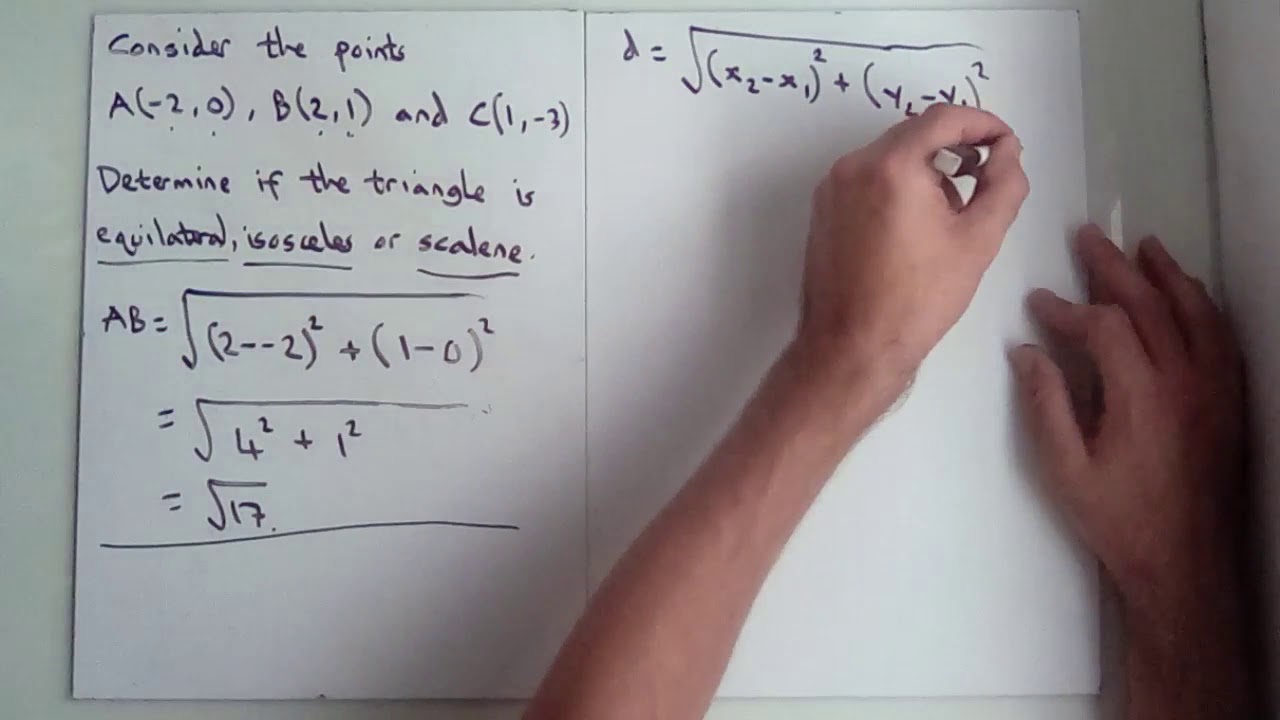 Consider the points
A(-2,0), B(2,1) and C(1,-3)
Determine if the triangle is
equilateral, isosceles or scalene.
AB = √(2--2)² + (1-0)²
= √4² + 1²
= √17.
d = √(x₂-x₁)² + (y₂-y₁)²